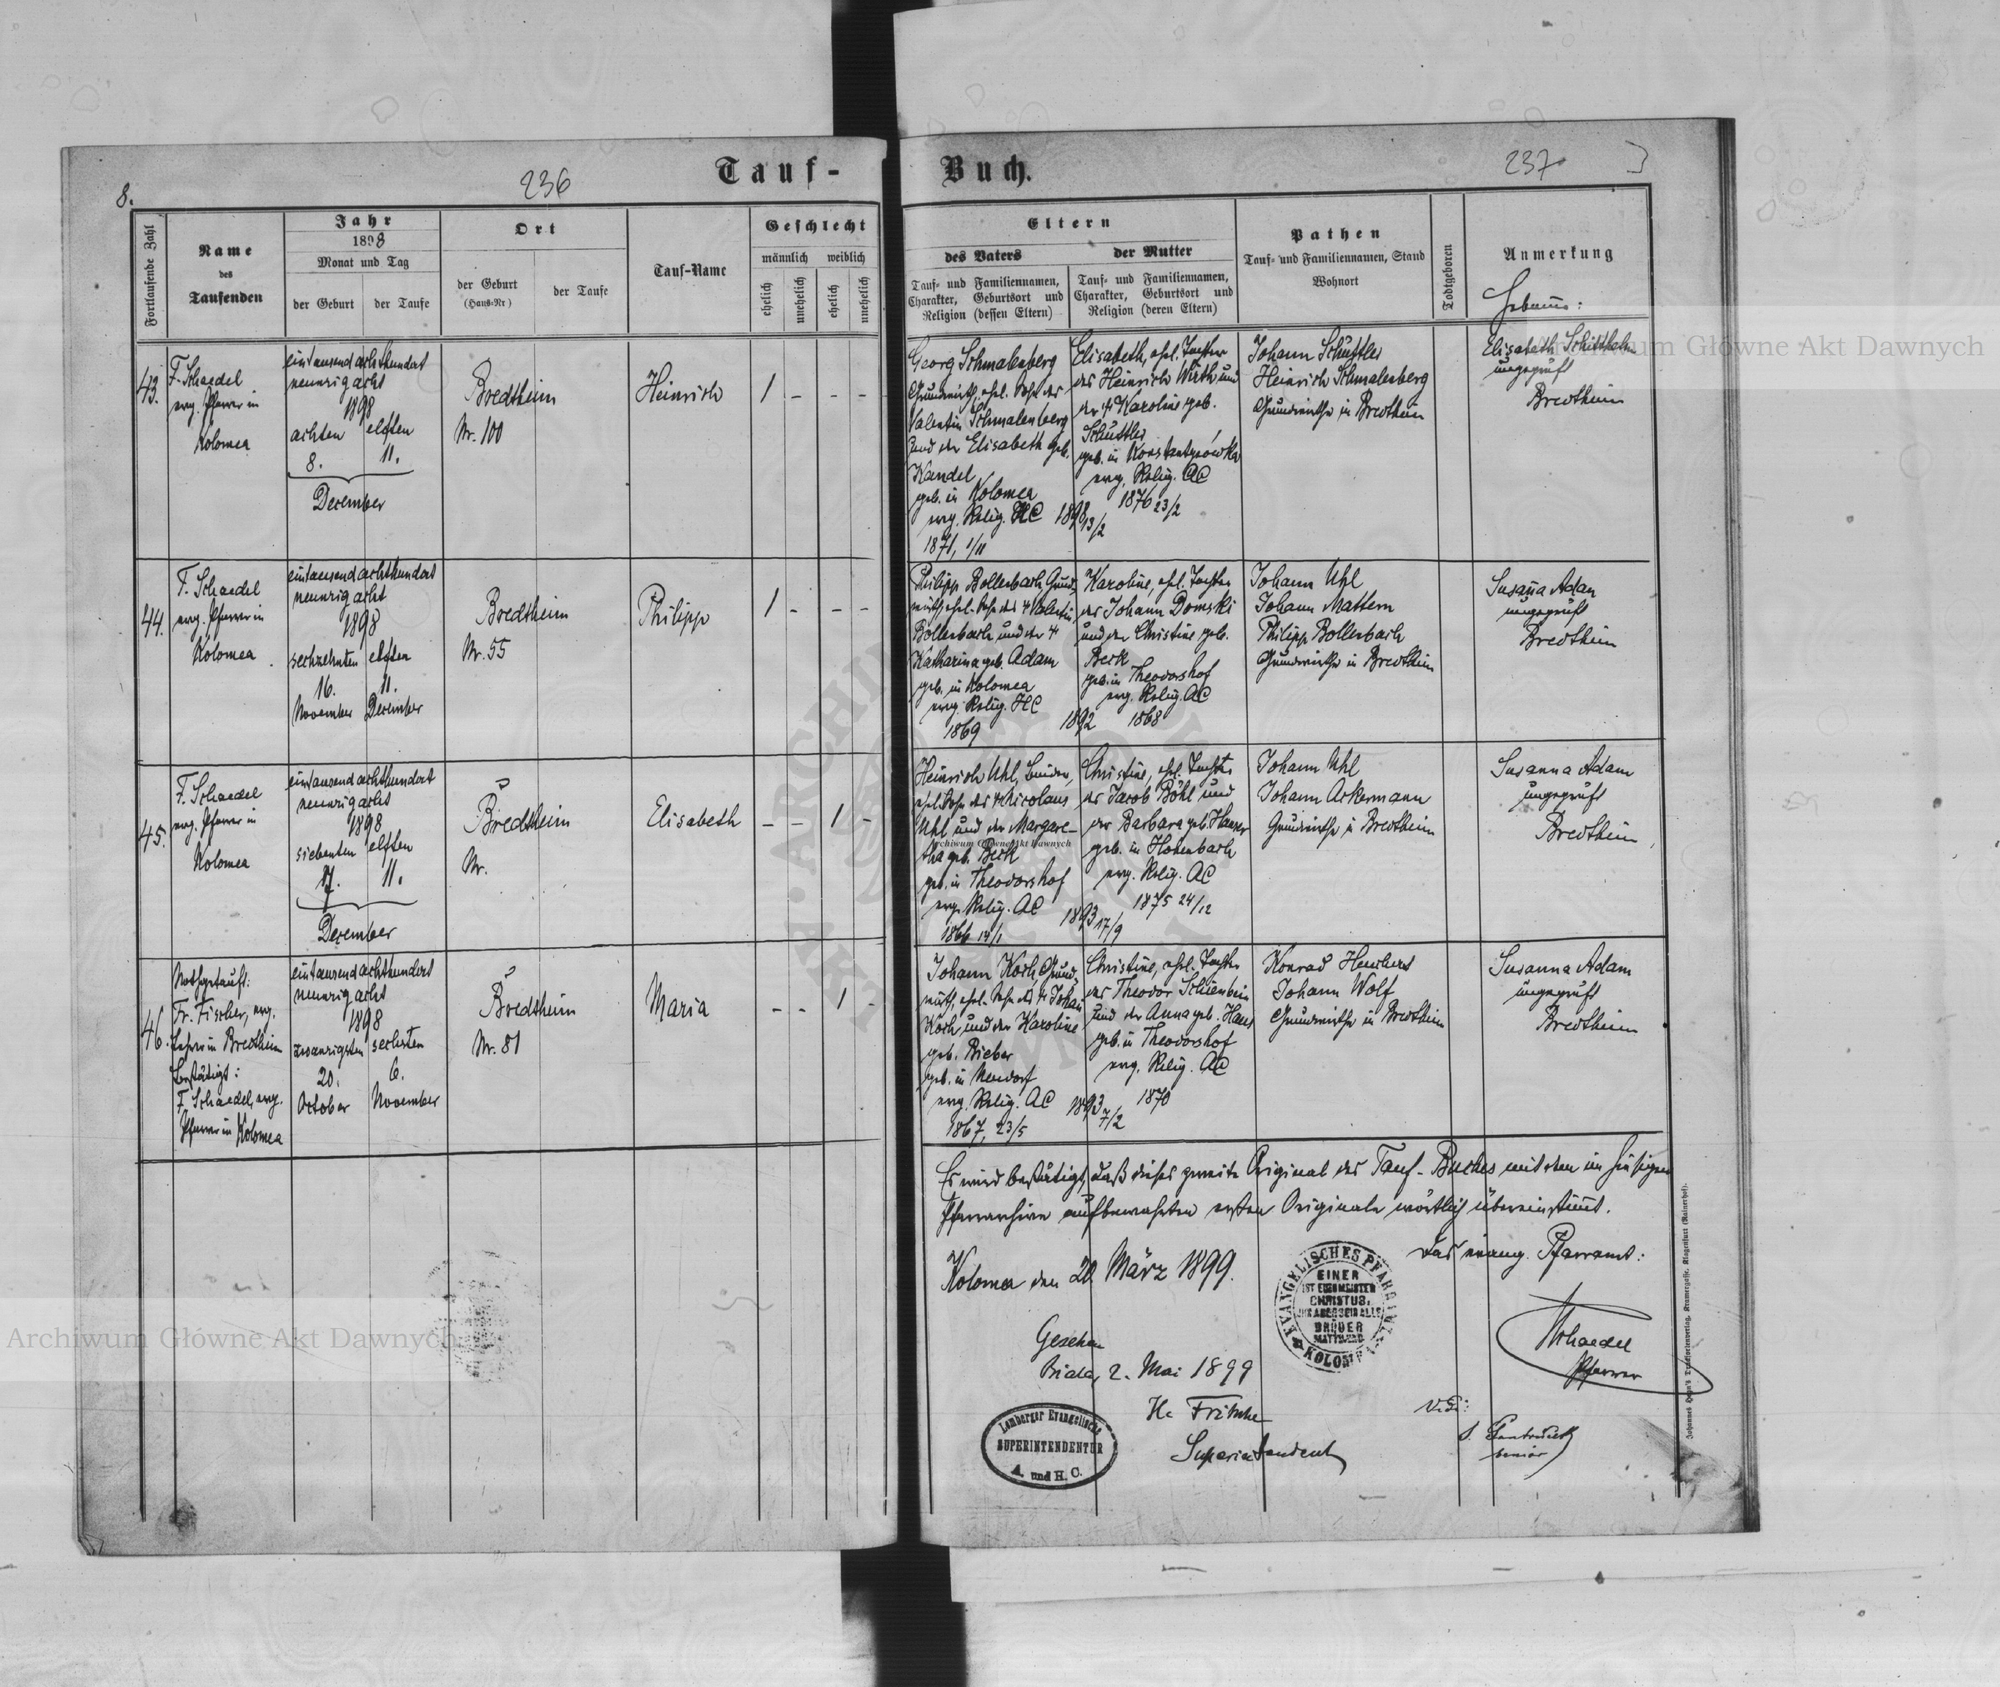 8.
236
Tauf-
Buch.
237
Fortlaufende Zahl
Name
des
Taufenden
Jahr
1898
Monat und Tag
der Geburt
der Taufe
Ort
der Geburt
(Haus-Nr)
der Taufe
Tauf-Name
Geschlecht
männlich
weiblich
ehelich
unehelich
ehelich
unehelich
Eltern
des Vaters
der Mutter
Tauf- und Familiennamen,
Charakter, Geburtsort und
Religion (dessen Eltern)
Tauf- und Familiennamen,
Charakter, Geburtsort und
Religion (deren Eltern)
Pathen
Tauf- und Familiennamen, Stand
Wohnort
Todtgeboren
Anmerkung
43.
F. Schaedel
evg. Pfarrer in
Kolomea
eintausendachthundert
neunzigacht
1898
achten elften
8. 11.
December
Bredtheim
Nr. 100
Heinrich
1 - - -
Georg Schmalenberg
Grundwirth, ehel. Sohn des
Valentin Schmalenberg
und der Elisabeth geb.
Kandel
geb. in Kolomea
evg. Relig. HC
1871, 1/11
1898 13/2
Elisabeth, ehel. Tochter
des Heinrich Wirth und
der † Karoline geb.
Schüttler
geb. in Konstantynówka
evg. Relig. AC
1876 23/2
Johann Schüttler
Heinrich Schmalenberg
Grundwirthe in Bredtheim
Elisabeth
ungeprüft
Bredtheim
44.
F. Schaedel
evg. Pfarrer in
Kolomea
eintausendachthundert
neunzigacht
1898
sechzehnten elften
16. 11.
November December
Bredtheim
Nr. 55
Philipp
1 - - -
Philipp Bollenbach Grund-
wirth, ehel. Sohn des † Valentin
Bollenbach und der †
Katharina geb. Adam
geb. in Kolomea
evg. Relig. HC
1869
1892
Karoline, ehel. Tochter
des Johann Domski
und der Christine geb.
Beck
geb. in Theodorshof
evg. Relig. AC
1868
Johann Uhl
Johann Mattern
Philipp Bollenbach
Grundwirthe in Bredtheim
Susana Adam
ungeprüft
Bredtheim
45.
F. Schaedel
evg. Pfarrer in
Kolomea
eintausendachthundert
neunzigacht
1898
siebenten elften
7. 11.
December
Bredtheim
Nr.
Elisabeth
- - 1 -
Heinrich Uhl,
ehel. Sohn des † Nicolaus
Uhl und der Margare-
tha geb. Beck
geb. in Theodorshof
evg. Relig. AC
1866 14/1
1893 17/9
Christine, ehel. Tochter
des Jacob Böhl und
der Barbara geb.
geb. in Hohenbach
evg. Relig. AC
1875 24/12
Johann Uhl
Johann Ackermann
Grundwirthe in Bredtheim
Susanna Adam
ungeprüft
Bredtheim
46.
Nothgetauft:
Fr. Fischer, evg.
Lehrer in Bredtheim
bestätigt:
F. Schaedel, evg.
Pfarrer in Kolomea
eintausendachthundert
neunzigacht
1898
zwanzigsten sechsten
20. 6.
October November
Bredtheim
Nr. 81
Maria
- - 1 -
Johann Koch, Grund-
wirth, ehel. Sohn des † Johann
Koch und der Karoline
geb. Bieber
geb. in Neudorf
evg. Relig. AC
1867, 23/5
1893 7/2
Christine, ehel. Tochter
des Theodor Schienbein
und der Anna geb. Haas
geb. in Theodorshof
evg. Relig. AC
1870
Konrad
Johann Wolf
Grundwirthe in Bredtheim
Susanna Adam
ungeprüft
Bredtheim
Es wird bestätigt, daß dieses zweite Original des Tauf-Buches mit dem im hiesigen
Pfarrarchive aufbewahrten ersten Originale wörtlich übereinstimmt.
Kolomea den 20. März 1899.
Das evang. Pfarramt:
EVANGELISCHES PFARRAMT
EINER
IST EUER MEISTER
CHRISTUS,
IHR ABER SEID ALLE
BRÜDER
KOLOMEA
Schaedel
Pfarrer
Gesehen
Biala, 2. Mai 1899
H. Fritsche
Superintendent
Lemberger Evangelische
SUPERINTENDENTUR
A. und H. C.
Vidi:
Senior
Archiwum Główne Akt Dawnych
Archiwum Główne Akt Dawnych
Archiwum Główne Akt Dawnych